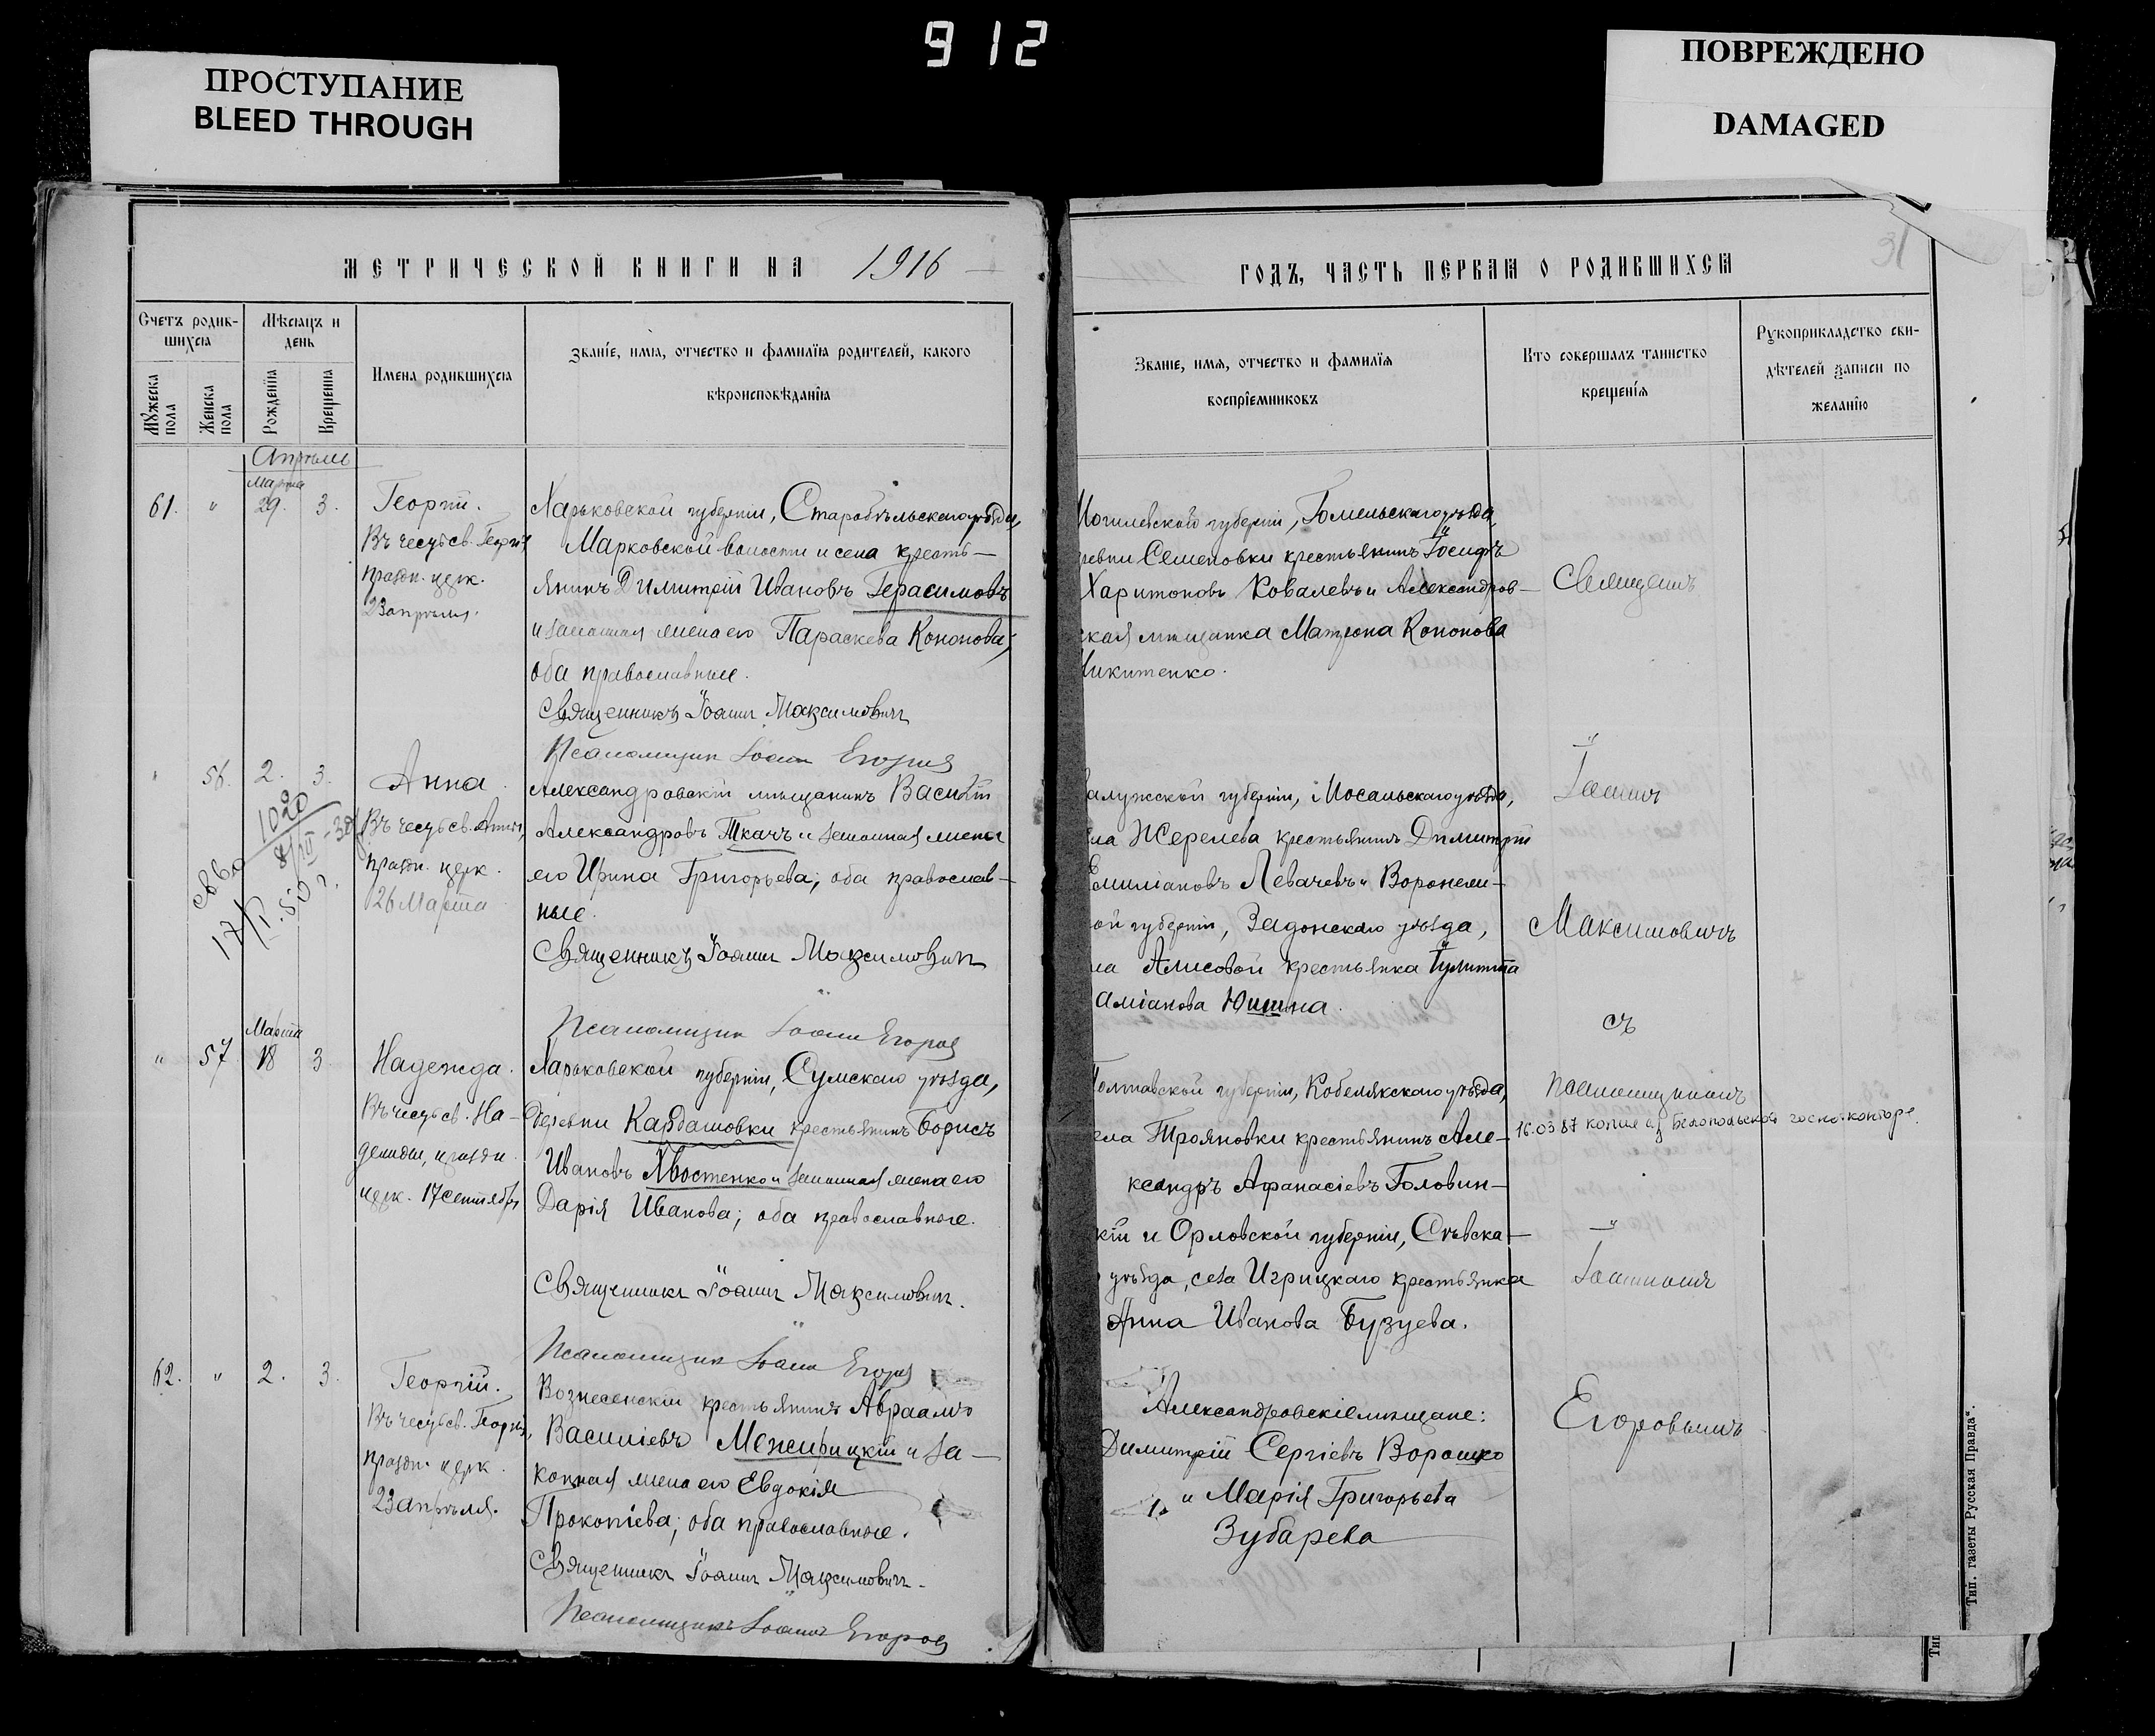 912
ПРОСТУПАНИЕ
BLEED THROUGH
ПОВРЕЖДЕНО
DAMAGED
МЕТРИЧЕСКОЙ КНИГИ НА 1916
Счетъ родив-
шихся
Мѣсяцъ и
день
Мужеска
пола
Женска
пола
Рожденія
Крещенія
Имена родившихся
Званіе, имя, отчество и фамилія родителей, какого
вѣроисповѣданія
Апрѣль
Марта
61. " 29. 3.
Георгій.
Въ честь св. Георгія
праздн. церк.
23 апрѣля.
Харьковской губерніи, Старобѣльскаго уѣзда,
Марковской волости и села кресть-
янинъ Димитрій Ивановъ Герасимовъ
и законная жена его Параскева Кононова;
оба православные.
Священникъ Іоаннъ Максимович
Псаломщик Іоанн Егоров
" 56. 2. 3.
Анна.
Въ честь св. Анны,
праздн. церк.
26 Марта
1020
Александровскій мѣщанинъ Василій
Александровъ Ткачъ и законная жена
его Ирина Григорьева; оба православ-
ные.
Священникъ Іоаннъ Максимович
Псаломщик Іоанн Егоров
Марта
" 57 18 3
Надежда.
Въ честь св. На-
дежды, праздн.
церк. 17 сентября
Харьковской губерніи, Сумскаго уѣзда,
деревни Кардашовки крестьянинъ Борисъ
Ивановъ Хвостенко и законная жена его
Дарія Иванова; оба православные.
Священникъ Іоаннъ Максимович.
Псаломщик Іоанн Егоров
62. " 2. 3.
Георгій.
Въ честь св. Георгія,
праздн. церк.
23 апрѣля.
Вознесенскій крестьянинъ Авраамъ
Василіевъ Межирицкій и за-
конная жена его Евдокія
Прокопіева; оба православные.
Священникъ Іоаннъ Максимович.
Псаломщикъ Іоаннъ Егоров
ГОДЪ, ЧАСТЬ ПЕРВАЯ О РОДИВШИХСЯ
31
Званіе, имя, отчество и фамилія
воспріемниковъ
Кто совершалъ таинство
крещенія
Рукоприкладство сви-
дѣтелей записи по
желанію
Могилевской губерніи, Гомельскаго уѣзда,
ревни Семеновки крестьянинъ Іосифъ
Харитоновъ Ковалевъ и Александров-
ская мѣщанка Матрона Кононова
Никитенко.
алужской губерніи, Мосальскаго уѣзда,
ла Жерелева крестьянинъ Димитрій
Емиліановъ Левачевъ и Воронеж-
ой губерніи, Задонскаго уѣзда,
ла Алисовой крестьянка Іулитта
аміанова Юшина.
Полтавской губерніи, Кобелякскаго уѣзда,
ела Трояновки крестьянинъ Але-
ксандръ Афанасіевъ Головин-
кій и Орловской губерніи, Сѣвска-
уѣзда, села Игрицкаго крестьянка
Анна Иванова Бузуева.
Александровскіе мѣщане:
Димитрій Сергіевъ Ворошко
и Марія Григорьева
Зубарева
Священникъ
Іоаннъ
Максимовичъ
съ
псаломщикомъ
16.03.87 копия в Белопольской госно. конторе.
Іоанномъ
Егоровымъ
Тип. газеты Русская Правда".